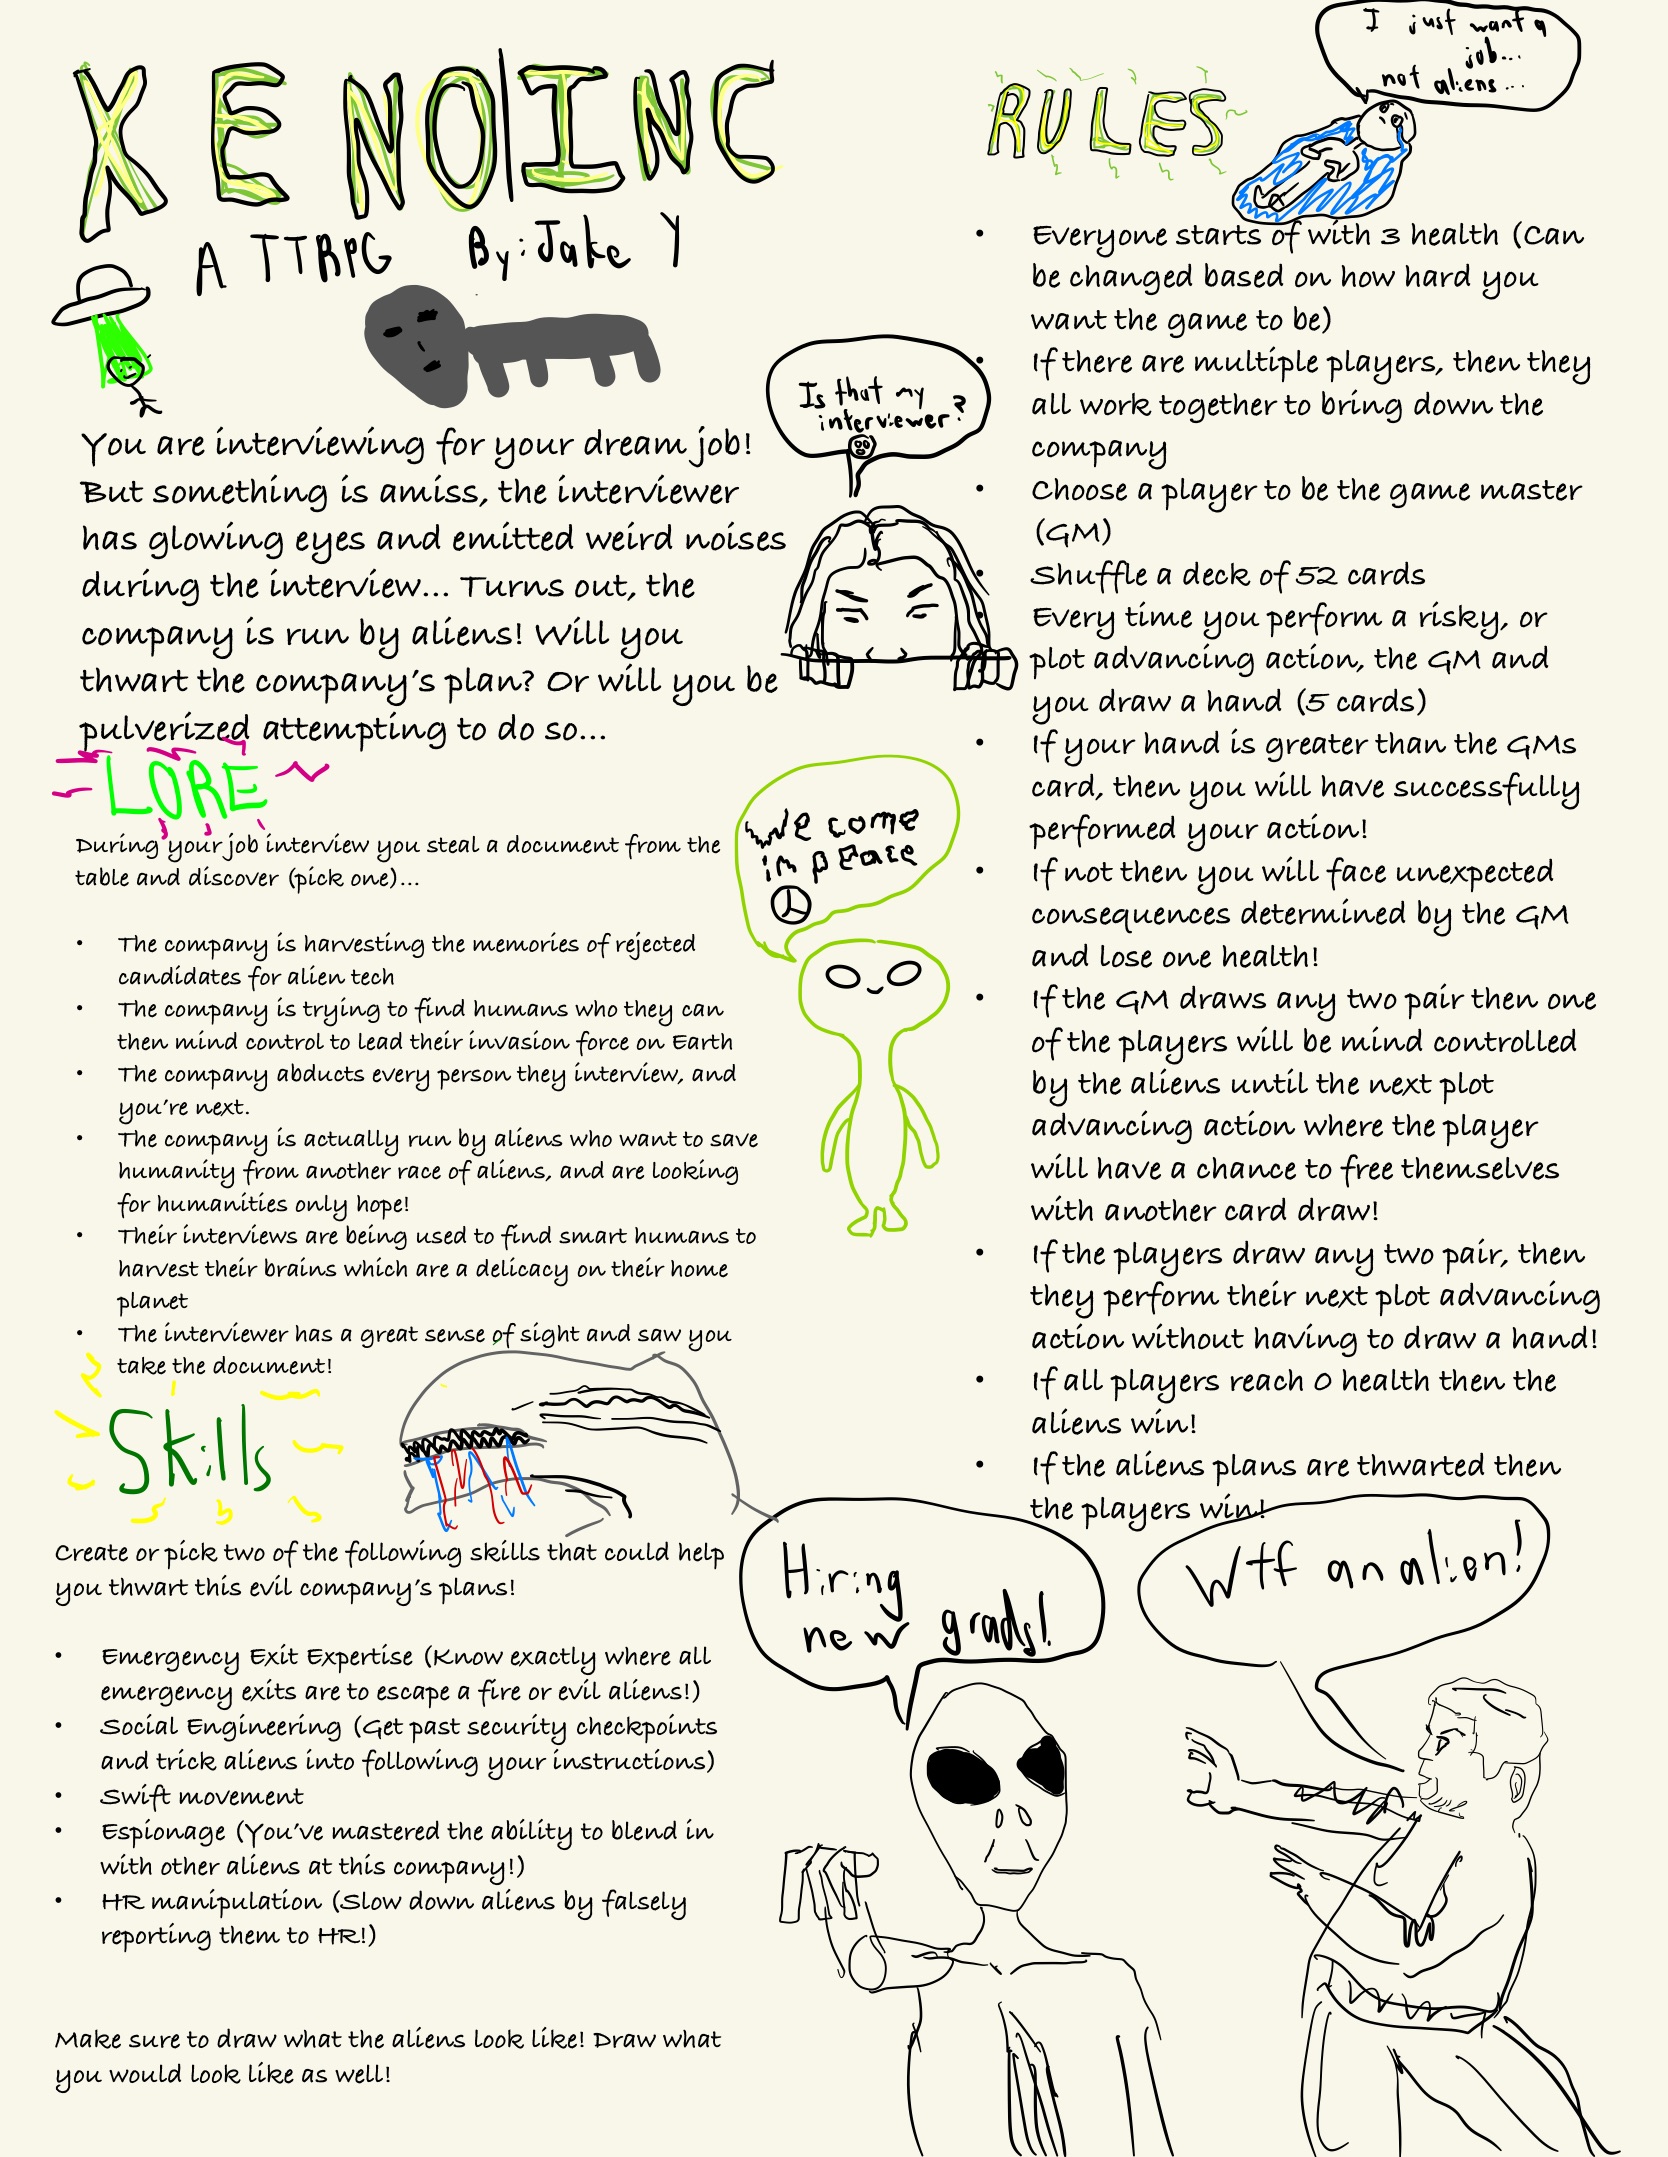 XENO|INC
A TTRPG By: Jake Y
You are interviewing for your dream job!
But something is amiss, the interviewer
has glowing eyes and emitted weird noises
during the interview... Turns out, the
company is run by aliens! Will you
thwart the company's plan? Or will you be
pulverized attempting to do so...
LORE
During your job interview you steal a document from the
table and discover (pick one)...
• The company is harvesting the memories of rejected
candidates for alien tech
• The company is trying to find humans who they can
then mind control to lead their invasion force on Earth
• The company abducts every person they interview, and
you're next.
• The company is actually run by aliens who want to save
humanity from another race of aliens, and are looking
for humanities only hope!
• Their interviews are being used to find smart humans to
harvest their brains which are a delicacy on their home
planet
• The interviewer has a great sense of sight and saw you
take the document!
Skills
Create or pick two of the following skills that could help
you thwart this evil company's plans!
• Emergency Exit Expertise (Know exactly where all
emergency exits are to escape a fire or evil aliens!)
• Social Engineering (Get past security checkpoints
and trick aliens into following your instructions)
• Swift movement
• Espionage (You've mastered the ability to blend in
with other aliens at this company!)
• HR manipulation (Slow down aliens by falsely
reporting them to HR!)
Make sure to draw what the aliens look like! Draw what
you would look like as well!
Is that my
interviewer?
We come
in peace
Hiring
new grads!
RULES
I just want a
job...
not aliens...
• Everyone starts of with 3 health (Can
be changed based on how hard you
want the game to be)
• If there are multiple players, then they
all work together to bring down the
company
• Choose a player to be the game master
(GM)
• Shuffle a deck of 52 cards
• Every time you perform a risky, or
plot advancing action, the GM and
you draw a hand (5 cards)
• If your hand is greater than the GMs
card, then you will have successfully
performed your action!
• If not then you will face unexpected
consequences determined by the GM
and lose one health!
• If the GM draws any two pair then one
of the players will be mind controlled
by the aliens until the next plot
advancing action where the player
will have a chance to free themselves
with another card draw!
• If the players draw any two pair, then
they perform their next plot advancing
action without having to draw a hand!
• If all players reach 0 health then the
aliens win!
• If the aliens plans are thwarted then
the players win!
Wtf an alien!